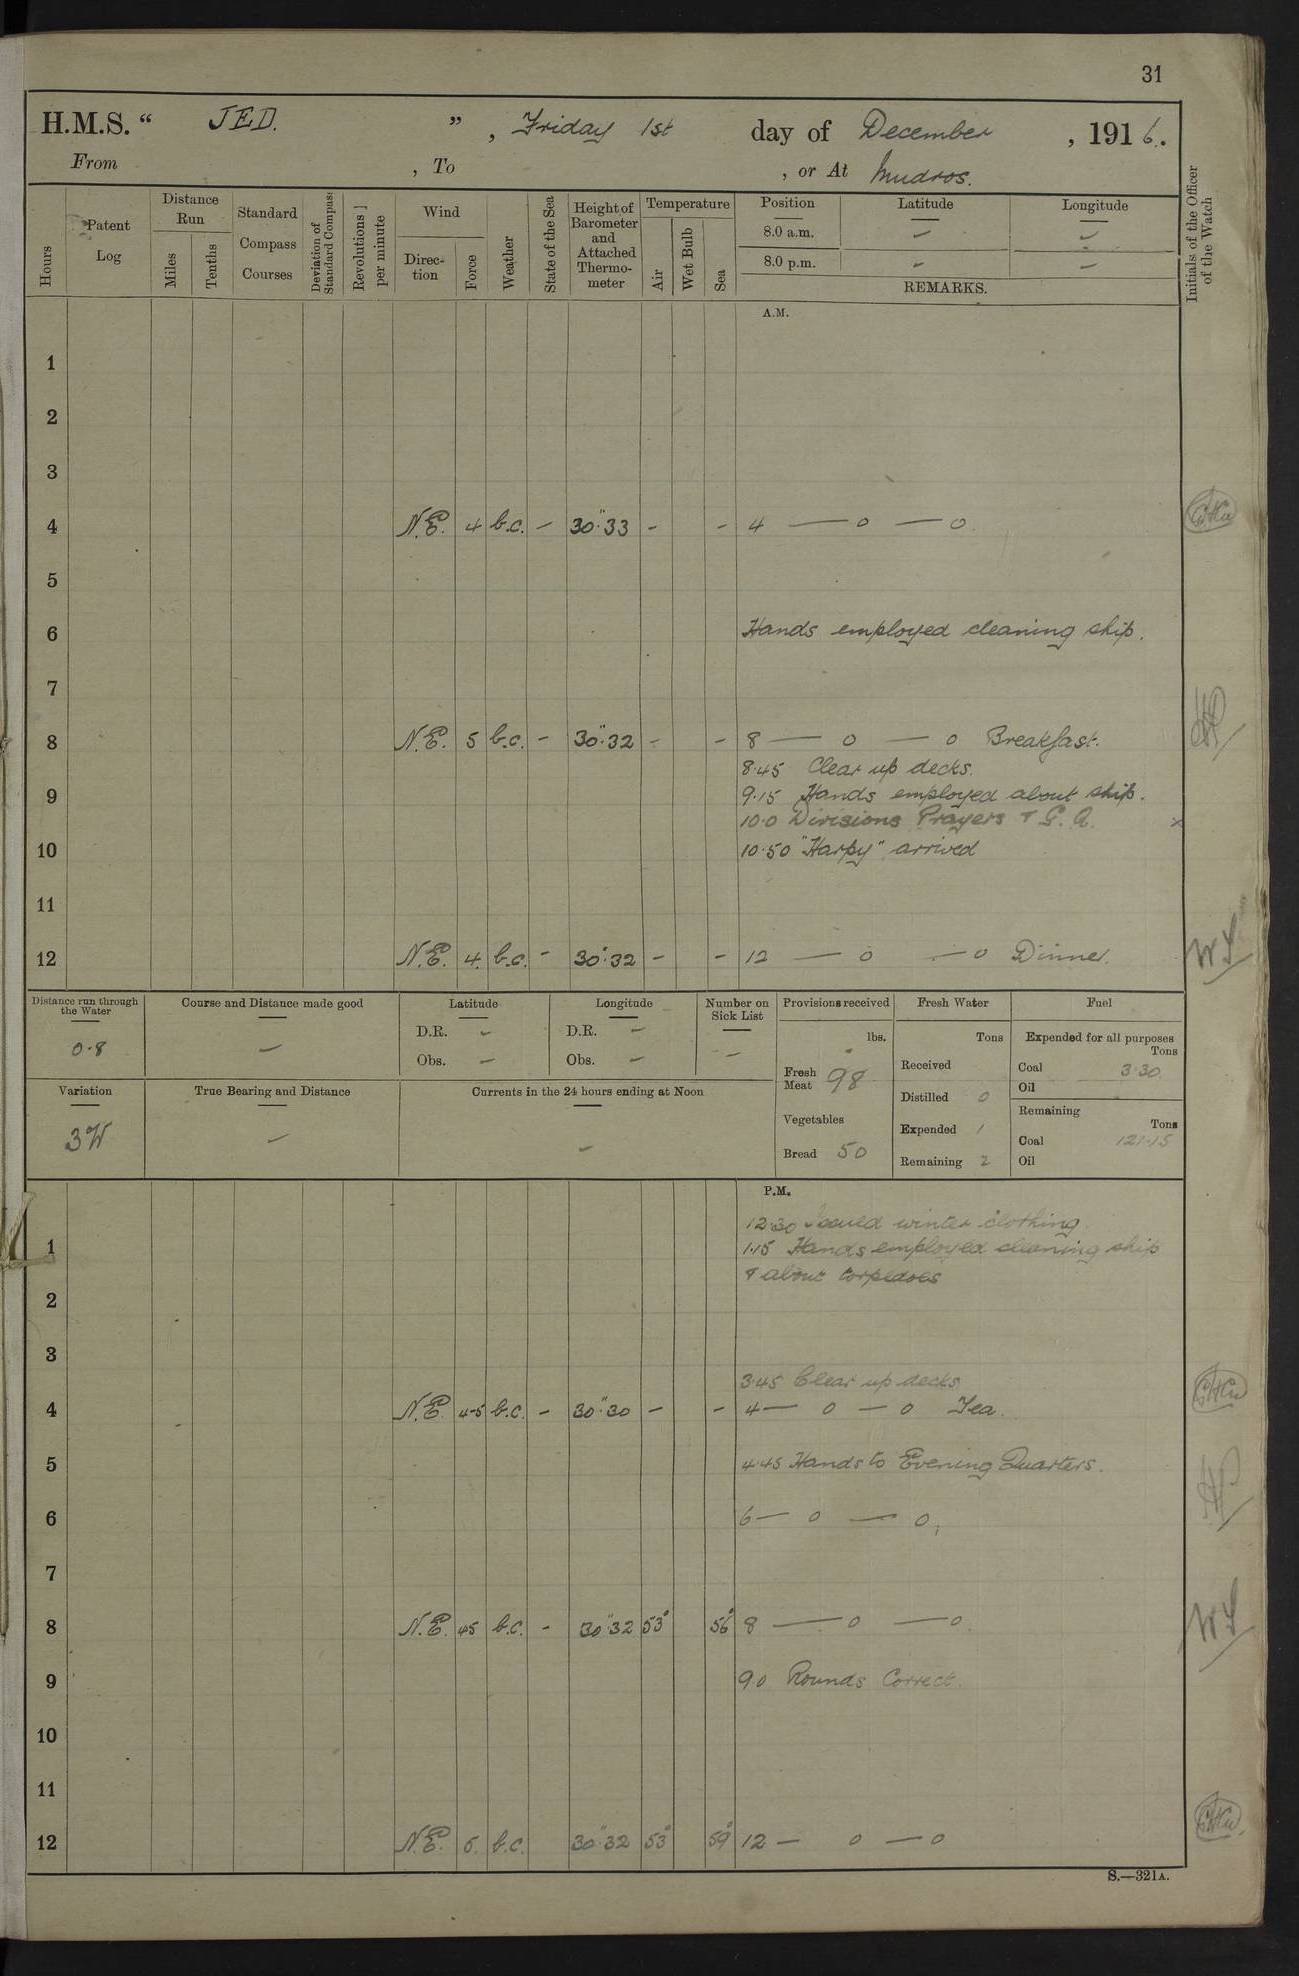 31
H.M.S. “ JED. ” , Friday 1st day of December , 1916.
From , To , or At Mudros.
Hours
Patent Log
Distance Run
Miles
Tenths
Standard Compass Courses
Deviation of Standard Compass
Revolutions per minute
Wind
Direction
Force
Weather
State of the Sea
Height of Barometer and Attached Thermometer
Temperature
Air
Wet Bulb
Sea
Position Latitude Longitude
8.0 a.m. – –
8.0 p.m. – –
REMARKS.
Initials of the Officer of the Watch
A.M.
1
2
3
4 N.E. 4 b.c. – 30".33 – – 4 — o — o
5
6 Hands employed cleaning ship.
7
8 N.E. 5 b.c. – 30".32 – – 8 — o — o Breakfast.
8.45 Clear up decks.
9 9.15 Hands employed about ship.
10.0 Divisions Prayers & G. Q. x
10 10.50 "Harpy" arrived
11
12 N.E. 4. b.c. – 30".32 – – 12 — o — o Dinner. WS
Distance run through the Water
0.8
Course and Distance made good
–
Latitude
D.R. –
Obs. –
Longitude
D.R. –
Obs. –
Number on Sick List
–
Variation
3W
True Bearing and Distance
–
Currents in the 24 hours ending at Noon
–
Provisions received
lbs.
Fresh Meat 98
Vegetables
Bread 50
Fresh Water
Tons
Received
Distilled 0
Expended 1
Remaining 2
Fuel
Expended for all purposes
Tons
Coal 3.30
Oil
Remaining
Tons
Coal 121.15
Oil
P.M.
12.30 Issued winter clothing
1 1.15 Hands employed cleaning ship
& about torpedoes
2
3
3.45 Clear up decks
4 N.E. 4-5 b.c. – 30".30 – – 4 — o — o Tea.
5 4.45 Hands to Evening Quarters.
6 6 — o — o.
7
8 N.E. 45 b.c. – 30".32 53° 56° 8 — o — o. WS
9 9.0 Rounds Correct.
10
11
12 N.E. 5. b.c. 30".32 53° 59° 12 — o — o
S.—321A.